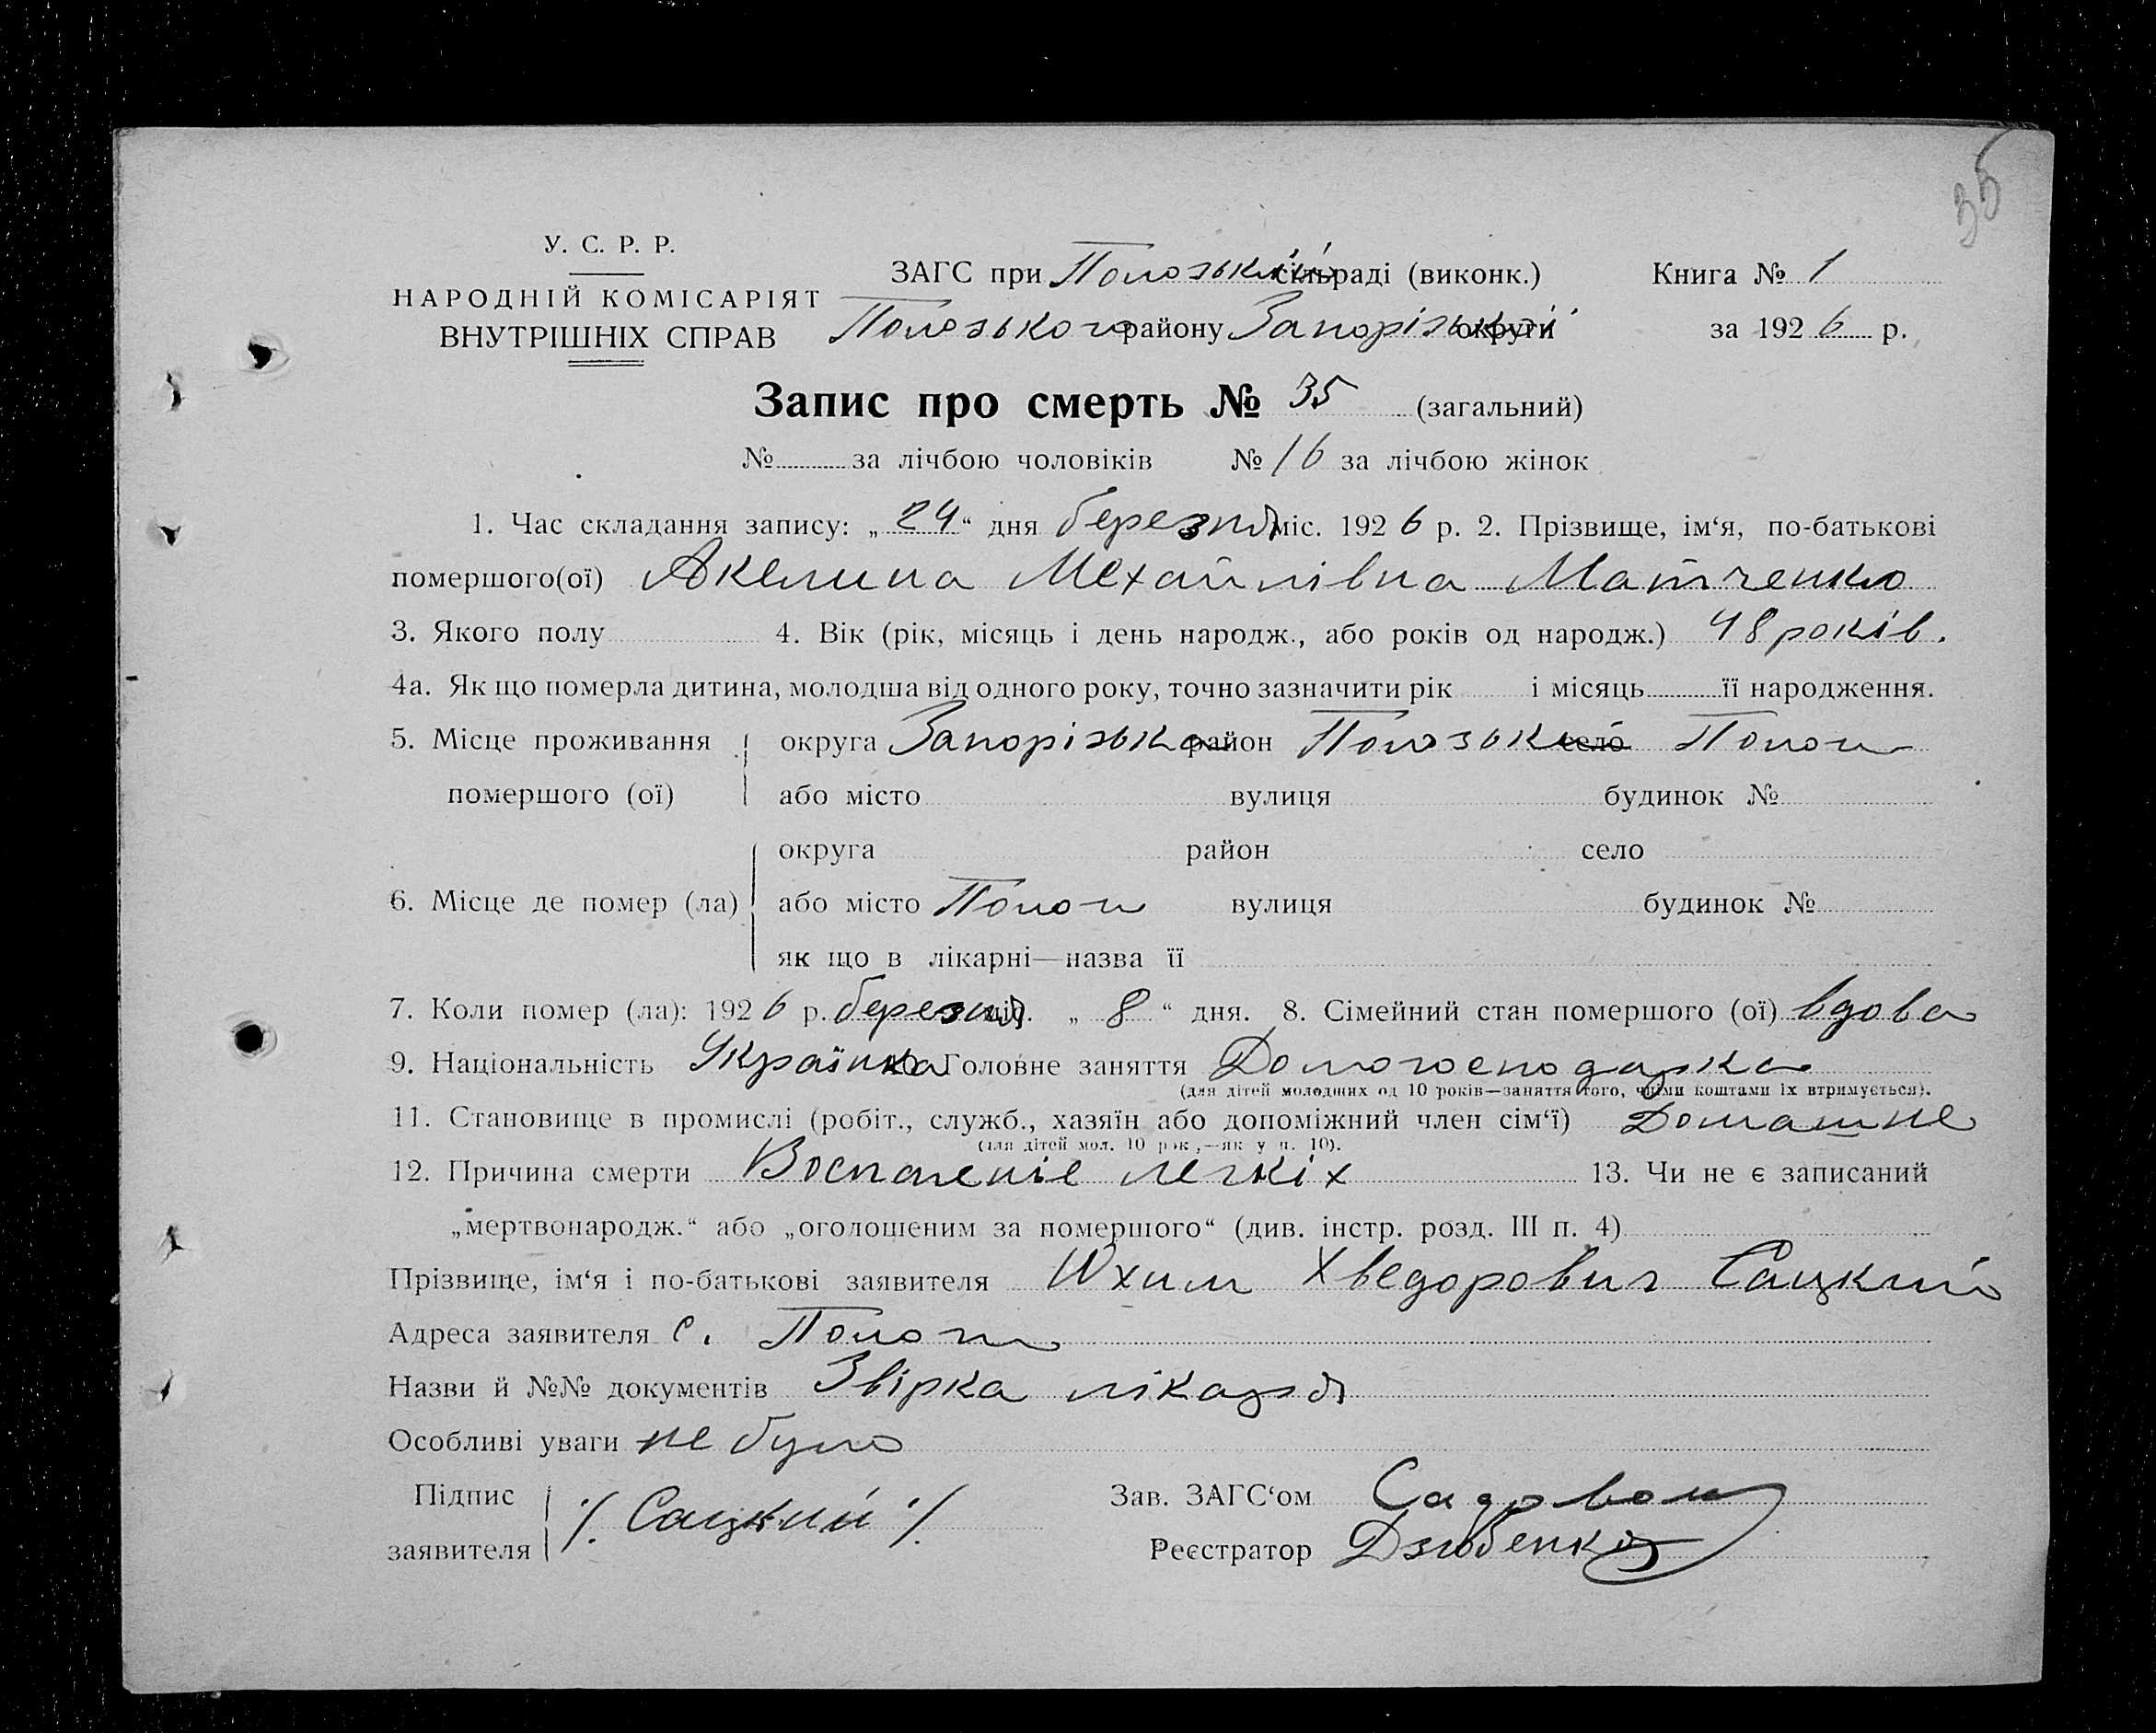 35
У. С. Р. Р.
НАРОДНІЙ КОМІСАРІЯТ
ВНУТРІШНІХ СПРАВ
ЗАГС при Пологській сільраді (виконк.) Книга № 1
Пологського району Запорізької округи за 1926 р.
Запис про смерть № 35 (загальний)
№ за лічбою чоловіків № 16 за лічбою жінок
1. Час складання запису: „24“ дня березня міс. 1926 р. 2. Прізвище, ім‘я, по-батькові
помершого(ої) Акелина Мехайлівна Матченко
3. Якого полу 4. Вік (рік, місяць і день народж., або років од народж.) 48 років.
4а. Як що померла дитина, молодша від одного року, точно зазначити рік і місяць її народження.
5. Місце проживання округа Запорізька район Пологськ село Пологи
помершого (ої) або місто вулиця будинок №
округа район село
6. Місце де помер (ла) або місто Пологи вулиця будинок №
як що в лікарні—назва її
7. Коли помер (ла): 1926 р. березня міс. „8“ дня. 8. Сімейний стан помершого (ої) вдова
9. Національність Українка 10. Головне заняття Домогосподарка
(для дітей молодших од 10 років—заняття того, чиїми коштами їх втримується).
11. Становище в промислі (робіт., служб., хазяїн або допоміжний член сім‘ї) Домашнє
(для дітей мол. 10 рок.,—як у п. 10).
12. Причина смерти Воспаленіе легкіх 13. Чи не є записаний
„мертвонародж.“ або „оголошеним за помершого“ (див. інстр. розд. III п. 4)
Прізвище, ім‘я і по-батькові заявителя Юхим Хведорович Сацкий
Адреса заявителя с. Пологи
Назви й №№ документів Звірка лікаря
Особливі уваги не було
Підпис
заявителя ·/. Сацкий ·/.
Зав. ЗАГС‘ом
Реєстратор Дзюбенко